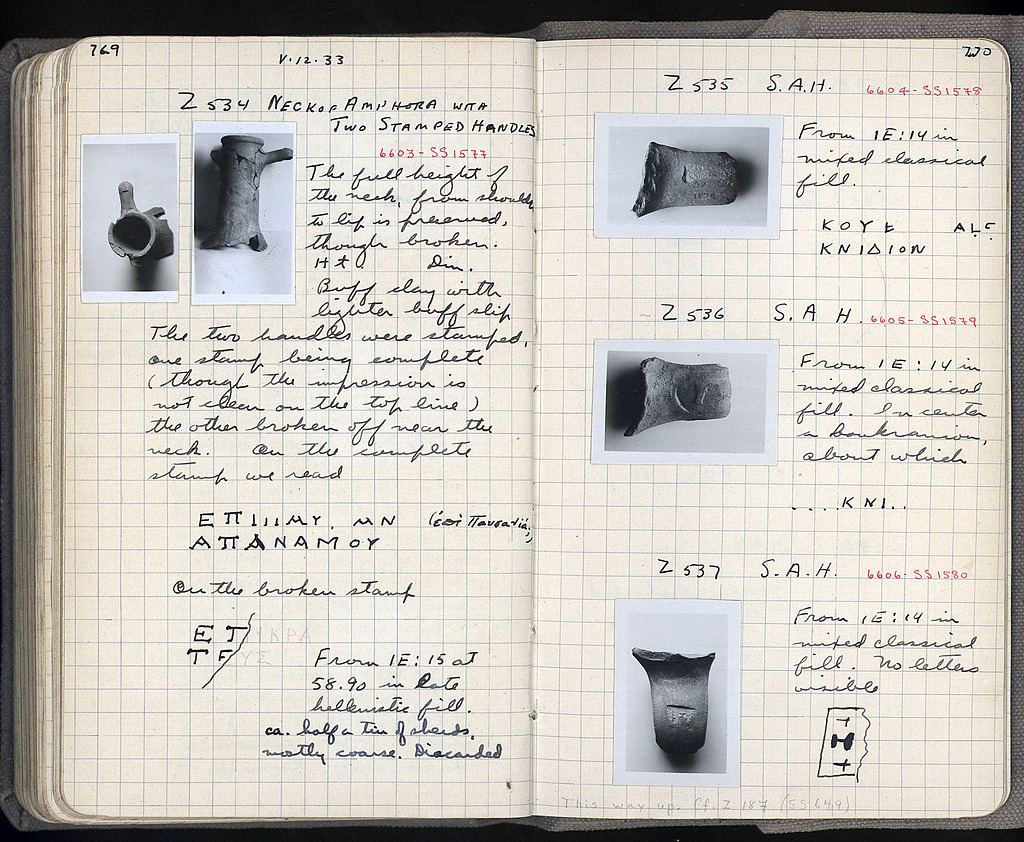 769
V.12.33
Z 534 NECK OF AMPHORA WITH
TWO STAMPED HANDLES
6603-SS1577
The full height of
the neck, from shoulder
to lip is preserved,
though broken.
Ht. Dim.
Buff clay with
lighter buff slip
The two handles were stamped,
one stamp being complete
(though the impression is
not clear on the top line)
the other broken off near the
neck. On the complete
stamp we read
ΕΠΙ
ΑΠΑΝΑΜΟΥ
On the broken stamp
ΕΤ ΚΡΑ
ΤΕΥΣ
From 1E:15 at
58.90 in Late
hellenistic fill.
ca. half a tin of sherds,
mostly coarse. Discarded
770
Z 535 S.A.H. 6604-SS1578
From 1E:14 in
mixed classical
fill.
ΚΟΥ
ΚΝΙΔΙΟΝ
Z 536 S.A.H. 6605-SS1579
From 1E:14 in
mixed classical
fill. In center
a boukranion,
about which
....ΚΝΙ..
Z 537 S.A.H. 6606-SS1580
From 1E:14 in
mixed classical
fill. No letters
visible
This way up. Cf. Z 187 (SS 649)